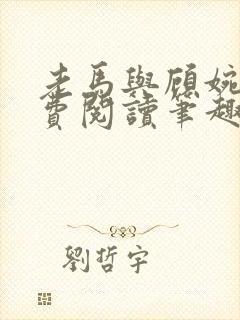 走馬與顧婉
費閱讀筆趣
劉哲宇